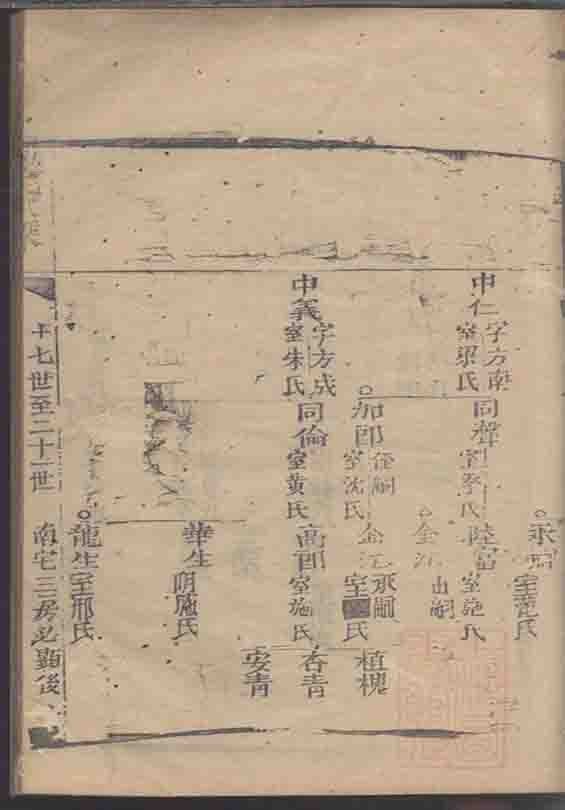 室范氏
中仁
字方南
室梁氏
同聲
陸富
室施氏
金沅
出嗣
加郎
室沈氏
金沅
承嗣
室
氏
植槐
中義
字方成
室朱氏
同倫
室黃氏
高郎
室施氏
杏青
安青
華生
聘施氏
龍生
室邢氏
十七世至二十一世
南宅三房必顯後